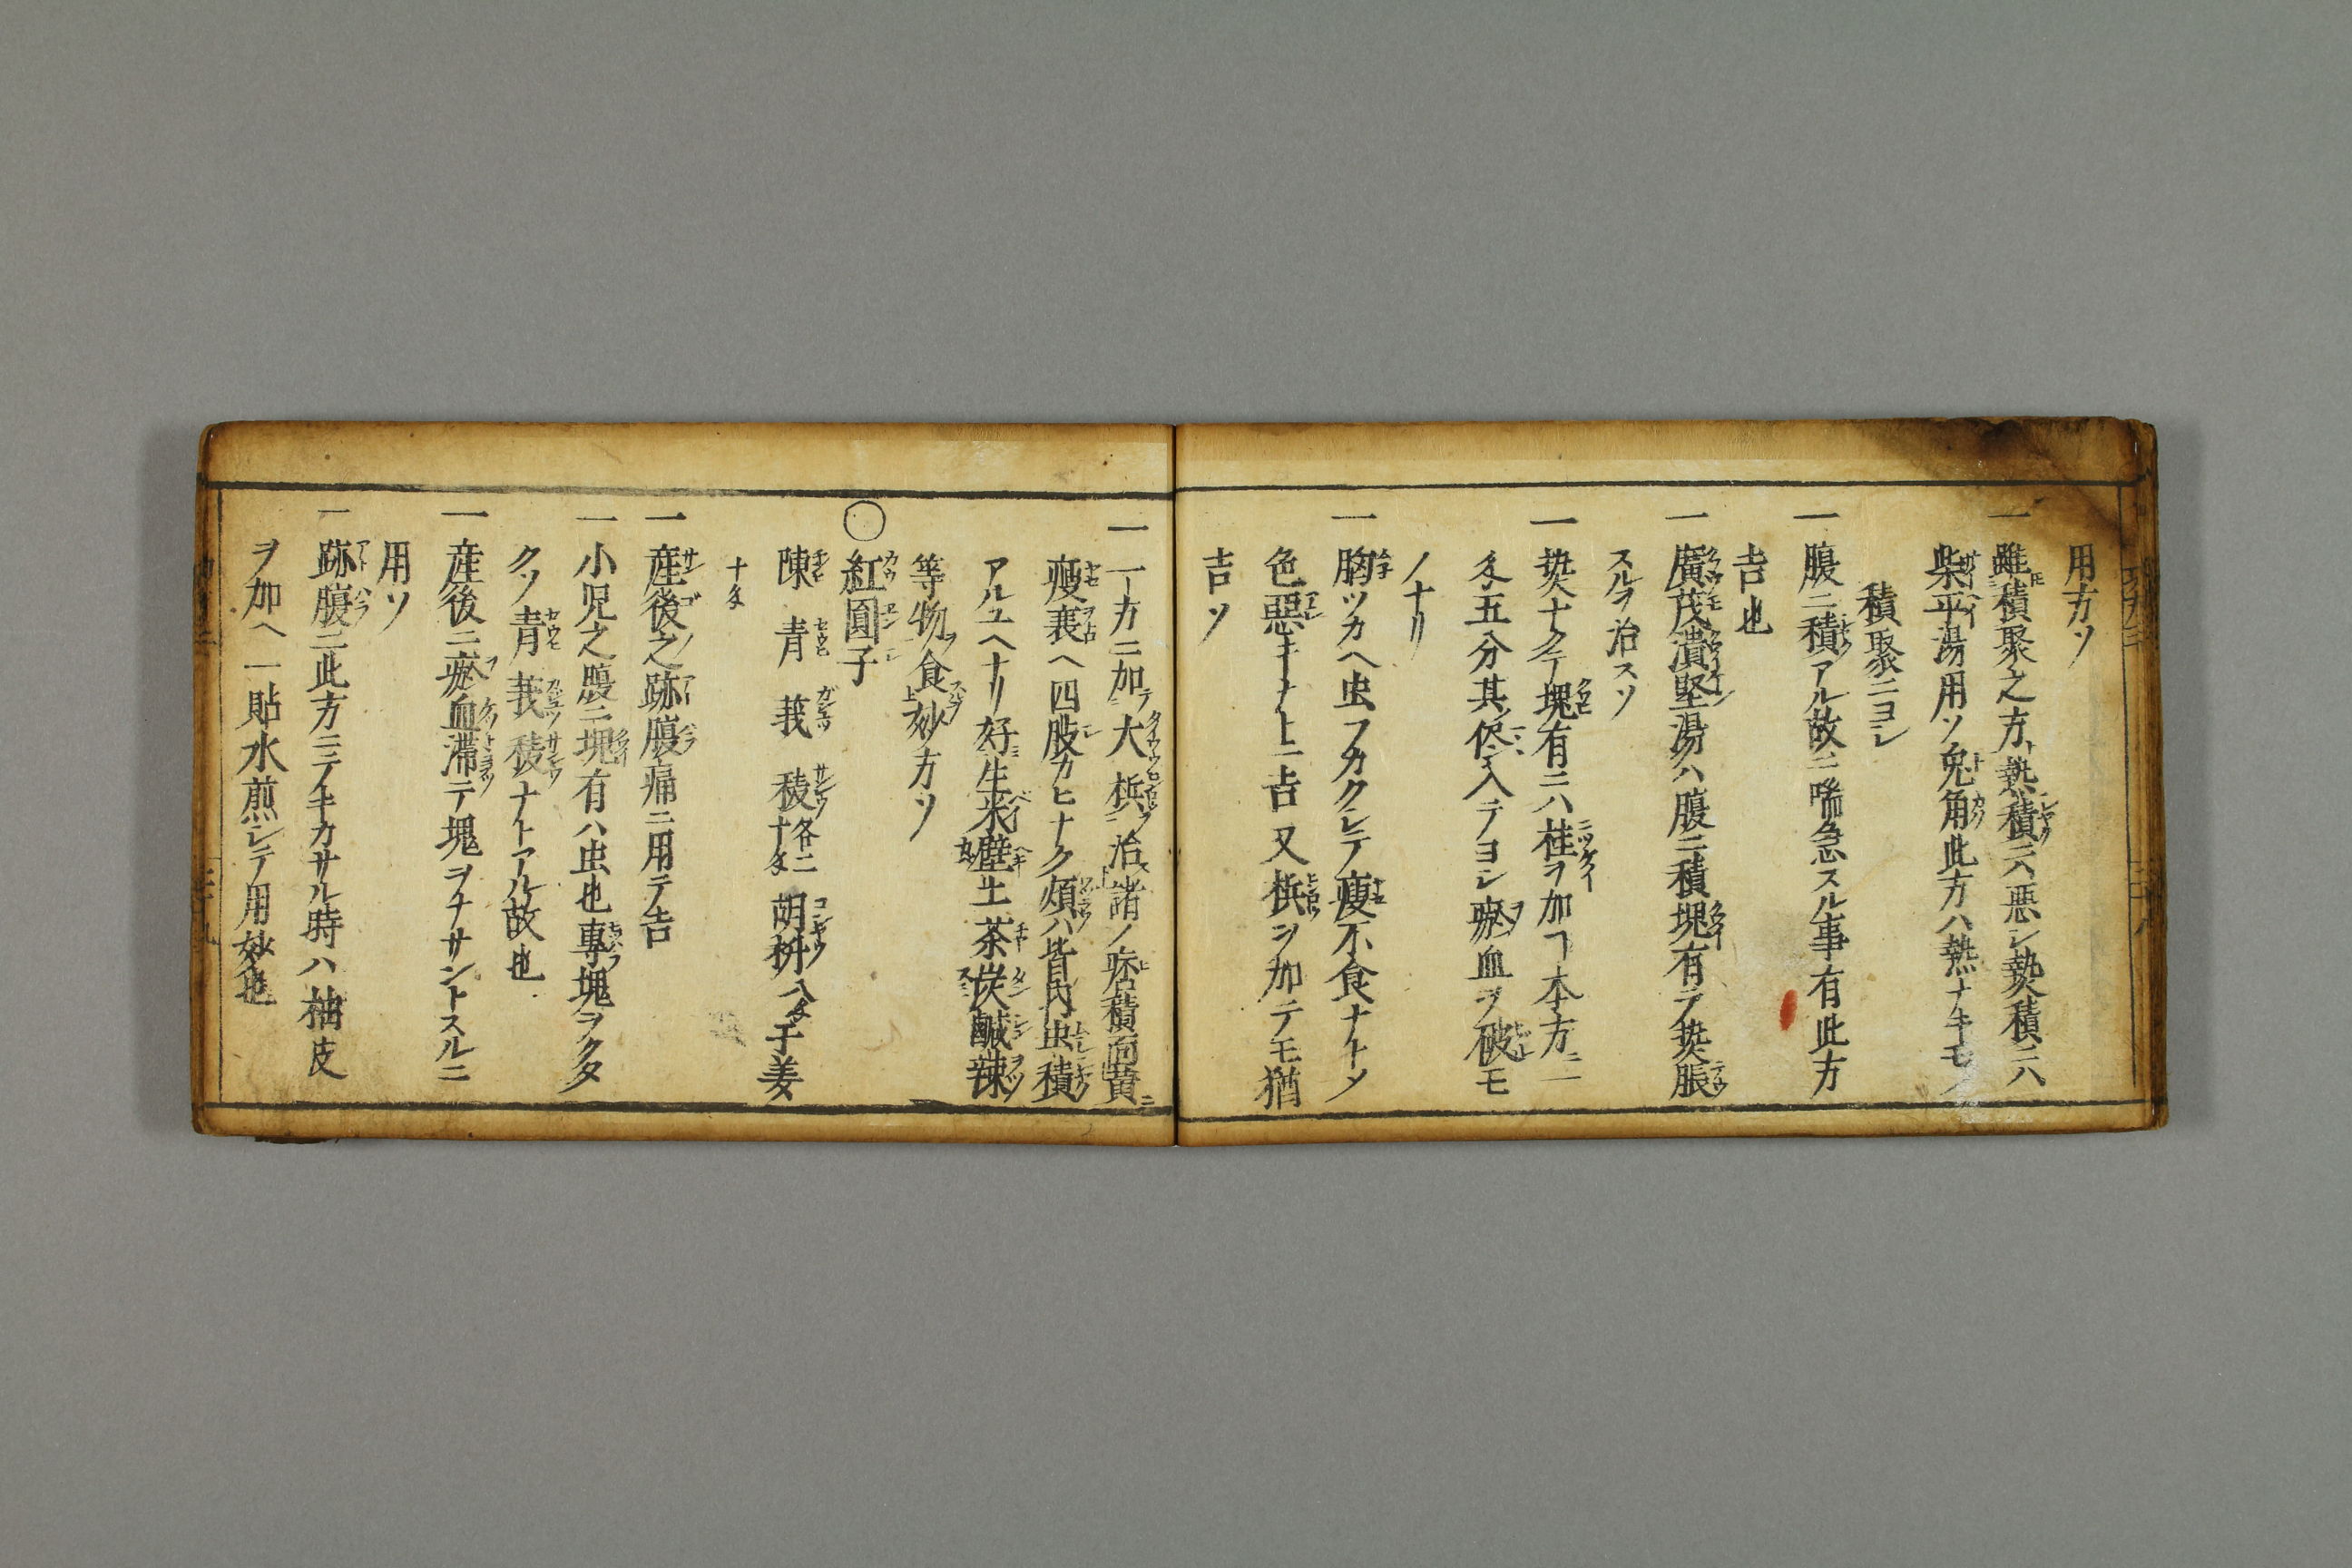 用方ソ
一雖積聚之方ト熱積ニハ悪シ熱積ニハ
柴平湯用ソ兎角此方ハ熱ナキモノ
積聚ニヨシ
一腹ニ積アル故ニ喘急スル事有此方
吉也
一廣茂潰堅湯ハ腹ニ積塊有テ熱脹
スルヲ治スソ
一熱ナクテ塊有ニハ桂ヲ加フ本方ニ
五分其ノ入テヨシ瘀血ヲ破モ
ノナリ
一胸ツカヘ虫フカクシテ痩不食ナトメ
色悪キナトニ吉又梹ヲ加テモ猶
吉ソ
一一方ニ加テ大梹治諸ノ痞積面黄
痩衰ヘ四肢カヒナク煩ハ皆肉虫積
アルユヘナリ好生米壁土茶炭鹹辣
等物ヲ食妙方ソ
○紅圓子
陳 青 莪 稜各二十 胡椒八 干姜
十
一産後之跡腹痛ニ用テ吉
一小児之腹ニ塊有ハ虫也專塊ヲクタ
クソ青莪稜ナトアル故也
一産後ニ瘀血滞テ塊ヲナサントスルニ
用ソ
一跡腹ニ此方ニテノキカサル時ハ柚皮
ヲ加ヘ一貼水煎シテ用妙也